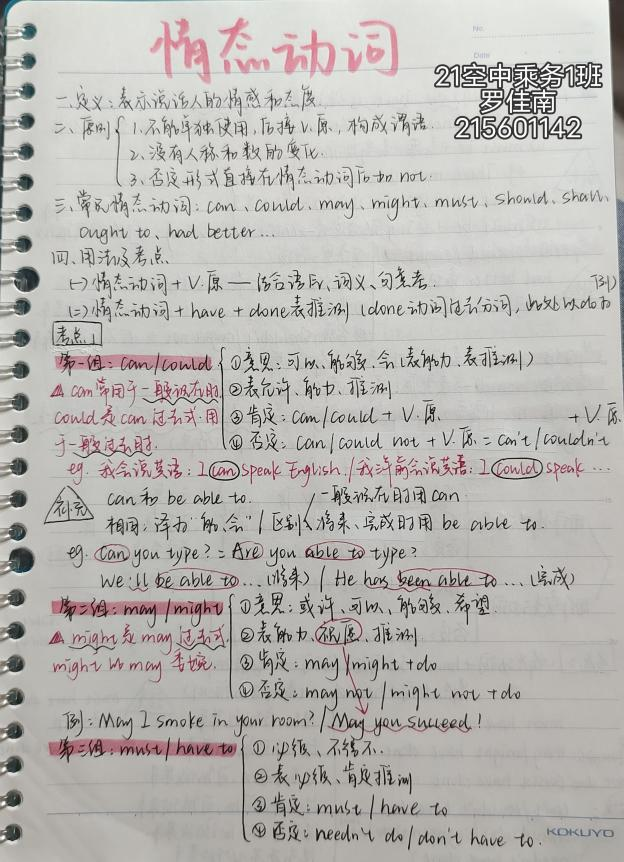 情态动词
No.
Date
21空中乘务1班
罗佳南
215601142
一、定义：表示说话人的情感和态度.
二、原则 1、不能单独使用,后接V.原,构成谓语.
2、没有人称和数的变化.
3、否定形式直接在情态动词后加 not.
三、常见情态动词：can、could、may、might、must、should、shall、
ought to、had better...
四、用法及考点
(一)情态动词+V.原—结合语气、词义、句意考.
(二)情态动词+have+done表推测(done动词过去分词,此处以do为例)
考点1
第一组：can/could ①意思：可以、能够、会(表能力、表推测)
can常用于一般现在时, ②表允许、能力、推测
could是can过去式·用 ③肯定：can/could+V.原
于一般过去时. ④否定：can/could not+V.原=can't/couldn't+V.原
eg. 我会说英语：I can speak English./我三年前会说英语：I could speak...
补充 can和be able to. 一般现在时用can.
相同：译为"能、会"/区别 将来、完成时用be able to.
eg. Can you type?=Are you able to type?
We'll be able to...(将来)/He has been able to...(完成)
第二组：may/might ①意思：或许、可以、能够、希望.
might是may过去式, ②表能力、祝愿、推测
might比may委婉. ③肯定：may/might+do
④否定：may not/might not+do
例：May I smoke in your room?/May you succeed!
第三组：must/have to ①必须、不得不.
②表必须、肯定推测
③肯定：must/have to
④否定：needn't do/don't have to.
KOKUYO